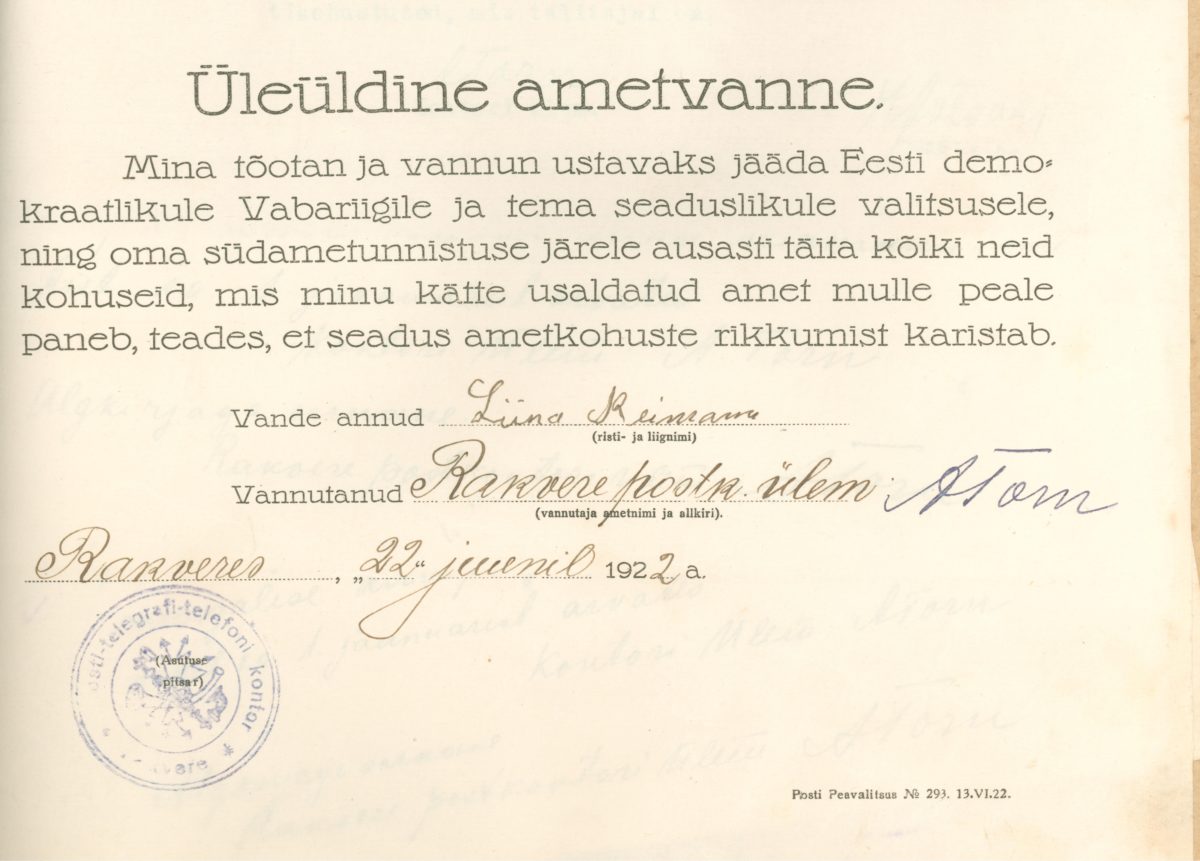 Üleüldine ametvanne.
Mina tõotan ja vannun ustavaks jääda Eesti demo-
kraatlikule Vabariigile ja tema seaduslikule valitsusele,
ning oma südametunnistuse järele ausasti täita kõiki neid
kohuseid, mis minu kätte usaldatud amet mulle peale
paneb, teades, et seadus ametkohuste rikkumist karistab.
Vande annud Liina Reimann
(risti- ja liignimi)
Vannutanud Rakvere postk. ülem ATorn
(vannutaja ametnimi ja allkiri).
Rakveres, „22“ juunil 1922 a.
osti-telegrafi-telefoni kontor
(Asutuse
pitsar)
kvere
Posti Peavalitsus № 293. 13.VI.22.